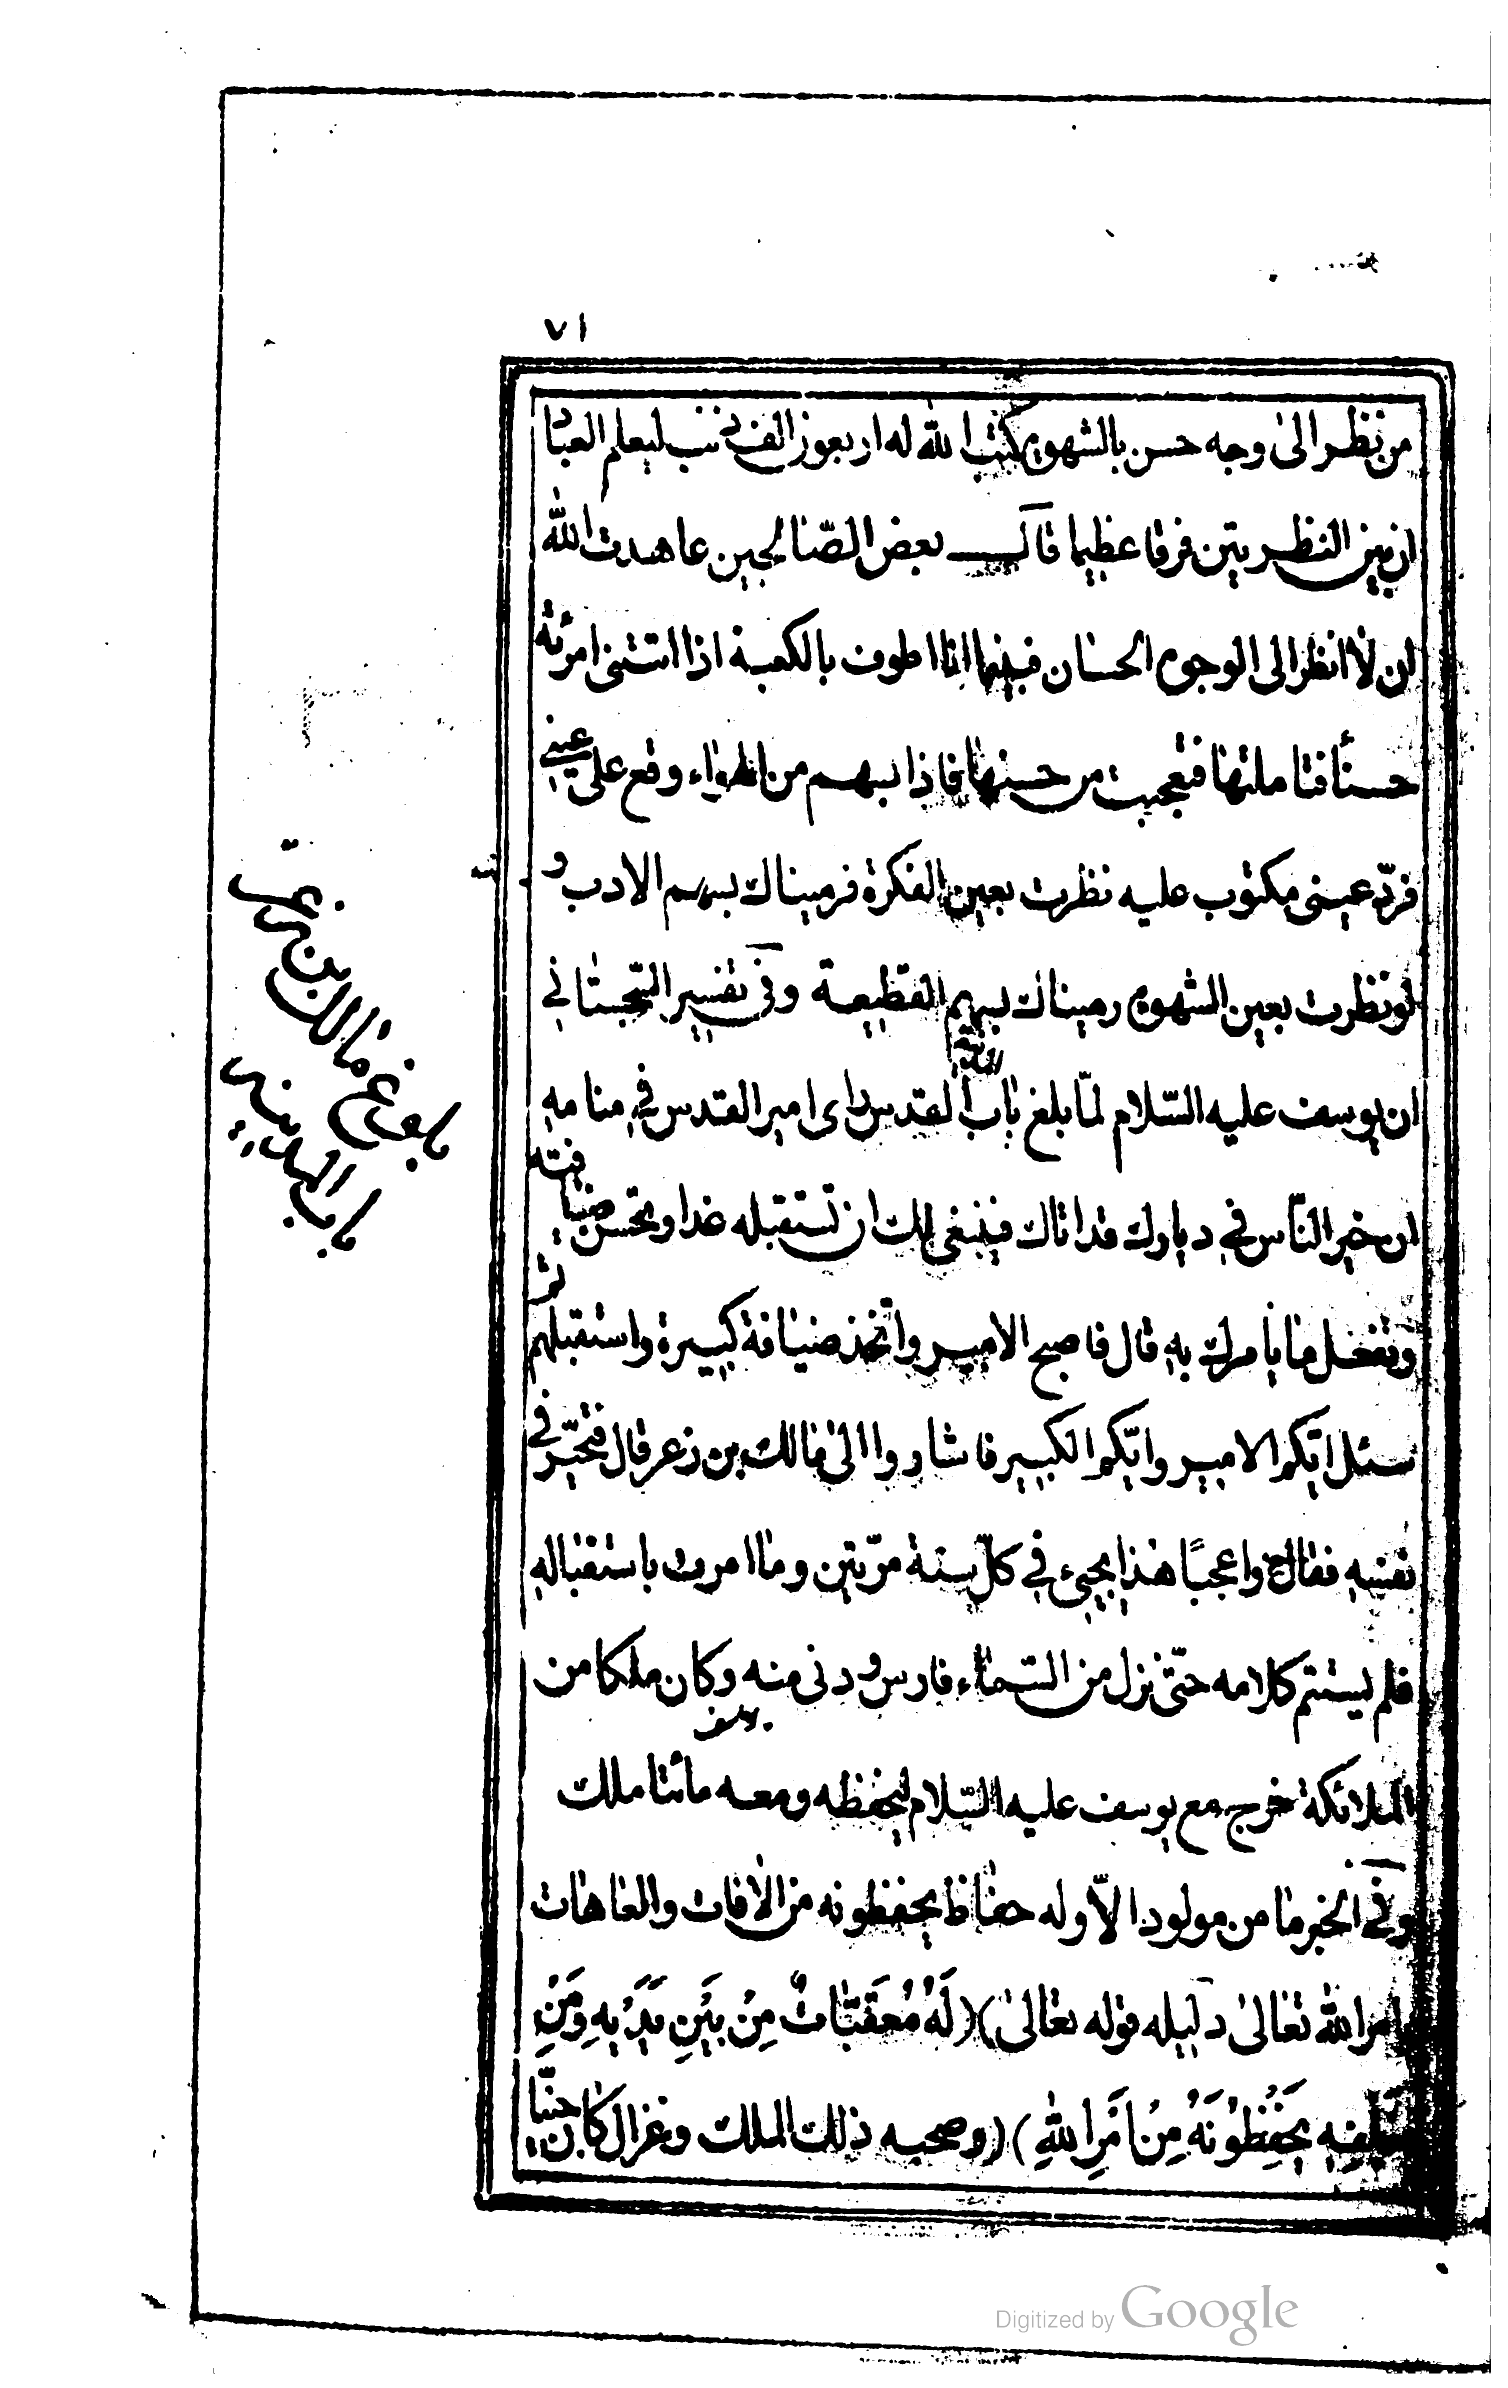 ٧١
من نظر الى وجه حسن بالشهوة كتب الله له اربعون الف ذنب ليعلم العباد
ان بين النظرتين فرقا عظيما قال بعض الصّالحين عاهدت الله
ان لا انظر الى الوجوه الحسان فبينما انا اطوف بالكعبة اذا امرئة
حسنأ فتاملتها فتعجبت من حسنها فاذا بسهم من الهواء وقع على عيني
فردّ عيني مكتوب عليه نظرت بعين الفكرة فرميناك بسهم الادب و
لو نظرت بعين الشهوة رميناك بسهم القطيعة وفي تفسير السّجستاني
ان يوسف عليه السّلام لمّا بلغ باب القدس راى امير القدس في منامه
ان خير النّاس في ديارك قد اتاك فينبغي لك ان تستقبله غدا وتحسن ضيافته
وتفعل ما يأمرك به قال فاصبح الامير واتّخذ ضيافة كبيرة واستقبلهم ثم
سئل ايّكم الامير وايّكم الكبير فاشاروا الى مالك بن زعر قال فتحيّر في
نفسه فقال واعجبًا هذا يجيء في كلّ سنة مرّتين وما امرت باستقباله
فلم يستتم كلامه حتّى نزل من السّماء فارس ودنى منه وكان ملكا من
الملائكة خرج مع يوسف عليه السّلام ليحفظه ومعه مائتا ملك
وفي الخبر ما من مولود الاّ وله حفاظ يحفظونه من الافات والعاهات
بامر الله تعالى دليله قوله تعالى (لَهُ مُعَقِّبَاتٌ مِنْ بَيْنِ يَدَيْهِ وَمِنْ
خلفه يَحْفَظُونَهُ مِنْ اَمْرِ اللهِ) وصحبه ذلك الملك وغزال كان جنّيّا
بلوغ مالك بن زعر
باب المدينة
Digitized by Google